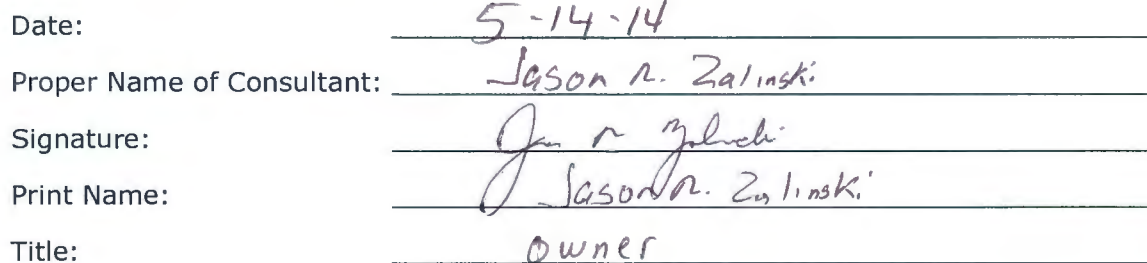 Date: 5-14-14
Proper Name of Consultant: Jason R. Zalinski
Signature:
Print Name: Jason R. Zalinski
Title: owner